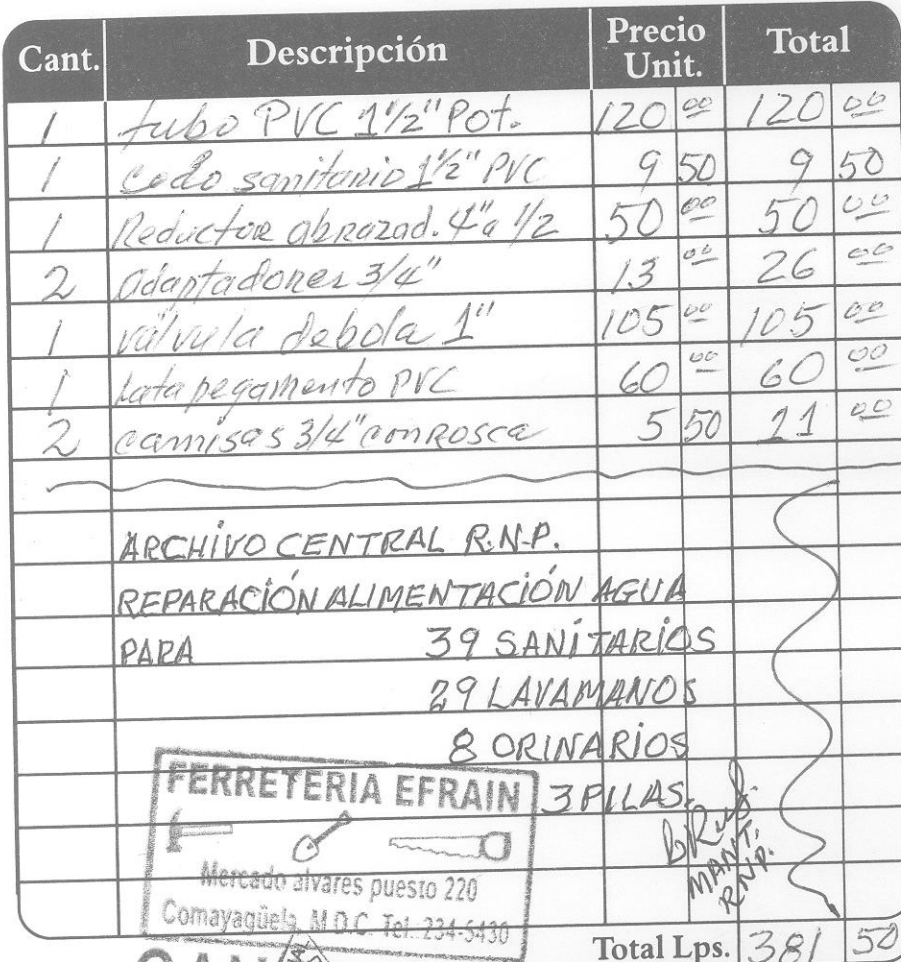 Cant. Descripción Precio Unit. Total
1 tubo PVC 1 1/2" Pot. 120 00 120 00
1 codo sanitario 1 1/2" PVC 9 50 9 50
1 Reductor abrazad. 4" a 1/2 50 00 50 00
2 adaptadores 3/4" 13 00 26 00
1 válvula debola 1" 105 00 105 00
1 Lata pegamento PVC 60 00 60 00
2 camisas 3/4" con ROSCA 5 50 11 00
ARCHIVO CENTRAL R.N.P.
REPARACIÓN ALIMENTACIÓN AGUA
PARA 39 SANITARIOS
29 LAVAMANOS
8 ORINARIOS
3 PILAS.
MANT.
R.N.P.
FERRETERIA EFRAIN
Mercado alvares puesto 220
Comayagüela, M.D.C. Tel. 234-5430
Total Lps. 381 50